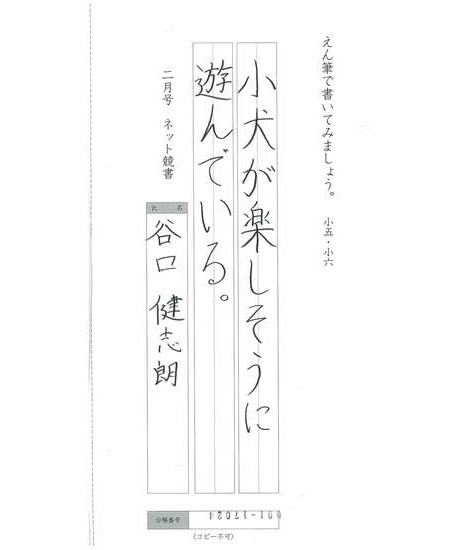 えん筆で書いてみましょう。 小五・小六
小犬が楽しそうに
遊んでいる。
二月号 ネット競書
氏名
谷口 健志朗
台帳番号
001-17024
〈コピー不可〉